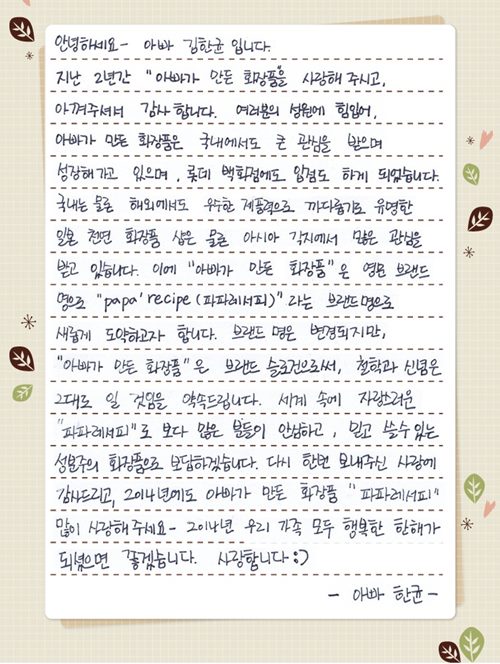 안녕하세요~ 아빠 김한균 입니다.
지난 2년간 "아빠가 만든 화장품"을 사랑해 주시고,
아껴주셔서 감사합니다. 여러분의 성원에 힘입어,
아빠가 만든 화장품은 국내에서도 큰 관심을 받으며
성장해가고 있으며, 롯데 백화점에도 입점도 하게 되었습니다.
국내는 물론 해외에서도 우수한 제품력으로 까다롭기로 유명한
일본 천연 화장품 샵은 물론 아시아 각지에서 많은 관심을
받고 있습니다. 이에 "아빠가 만든 화장품"은 영문 브랜드
명으로 "papa'recipe(파파레서피)"라는 브랜드명으로
새롭게 도약하고자 합니다. 브랜드 명은 변경되지만,
"아빠가 만든 화장품"은 브랜드 슬로건으로써, 철학과 신념은
그대로 일 것임을 약속드립니다. 세계 속에 자랑스러운
"파파레서피"로 보다 많은 분들이 안심하고, 믿고 쓸수있는
성분주의 화장품으로 보답하겠습니다. 다시 한번 보내주신 사랑에
감사드리고, 2014년에도 아빠가 만든 화장품 "파파레서피"
많이 사랑해 주세요~ 2014년 우리 가족 모두 행복한 한해가
되셨으면 좋겠습니다. 사랑합니다 :)
- 아빠 한균 -